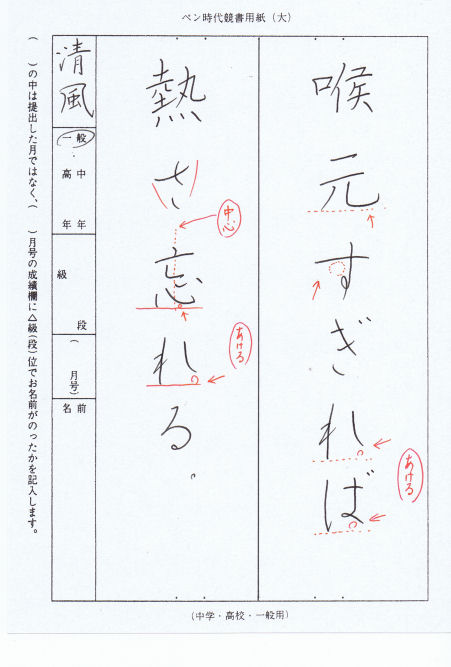 ペン時代鏡書用紙(大)
喉元すぎれば
あける
熱さ忘れる。
中心
あける
清風
一般
高中
年年
級
段
( 月号)
名前
( )の中は提出した月ではなく、( )月号の成績欄に△級(段)位でお名前がのったかを記入します。
(中学・高校・一般用)